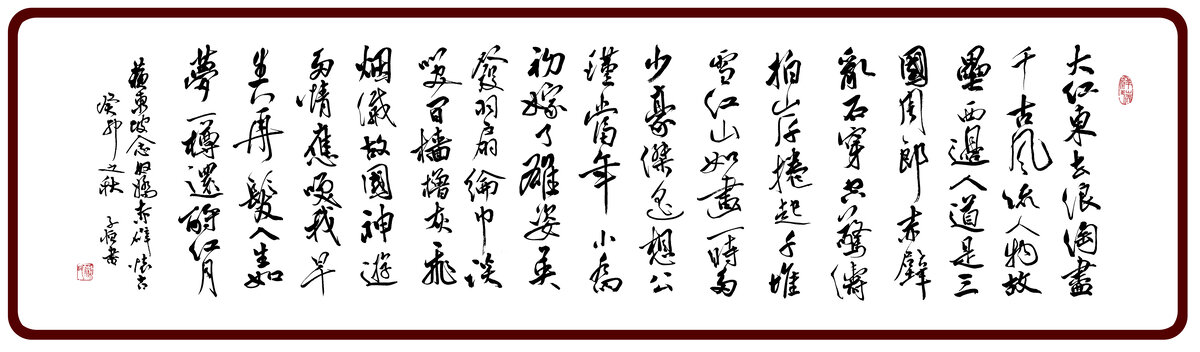 大江東去浪淘盡
千古風流人物故
壘西邊人道是三
國周郎赤壁
亂石穿空驚濤
拍岸捲起千堆
雪江山如畫一時多
少豪傑遙想公
瑾當年小喬
初嫁了雄姿英
發羽扇綸巾談
笑間檣櫓灰飛
烟滅故國神遊
多情應笑我早
生華髮人生如
夢一樽還酹江月
蘇東坡念奴嬌赤壁懷古
癸卯之秋 子恒書